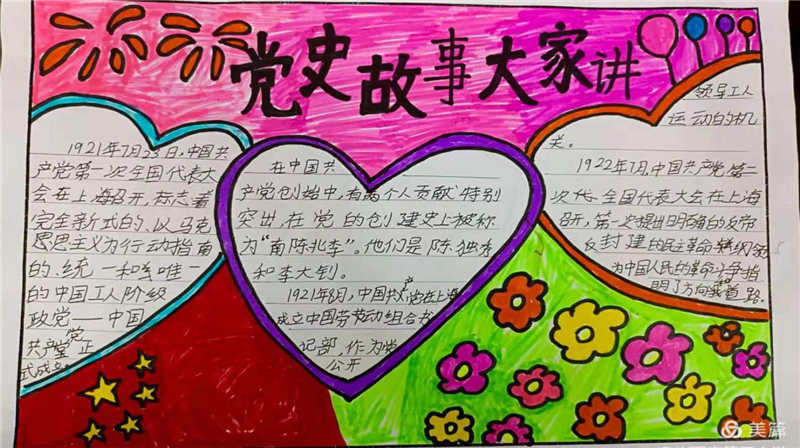 党史故事大家讲
1921年7月23日,中国共
产党第一次全国代表大
会在上海召开,标志着
完全新式的、以马克
思主义为行动指南
的、统一和唯一
的中国工人阶级
政党——中国
共产党正
式成立
在中国共
产党创始中,有两个人贡献特别
突出,在党的创建史上被称
为“南陈北李”。他们是陈独秀
和李大钊。
1921年8月,中国共产党在上海
成立中国劳动组合书
记部,作为党
公开
领导工人
运动的机
关。
1922年7月,中国共产党第二
次代全国代表大会在上海
召开,第一次提出明确的反帝
反封建的民主革命纲领
为中国人民的革命斗争指
明了方向和道路.
美篇